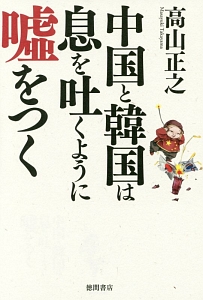 高山正之
Masayuki Takayama
中国と韓国は
息を吐くように
嘘をつく
徳間書店